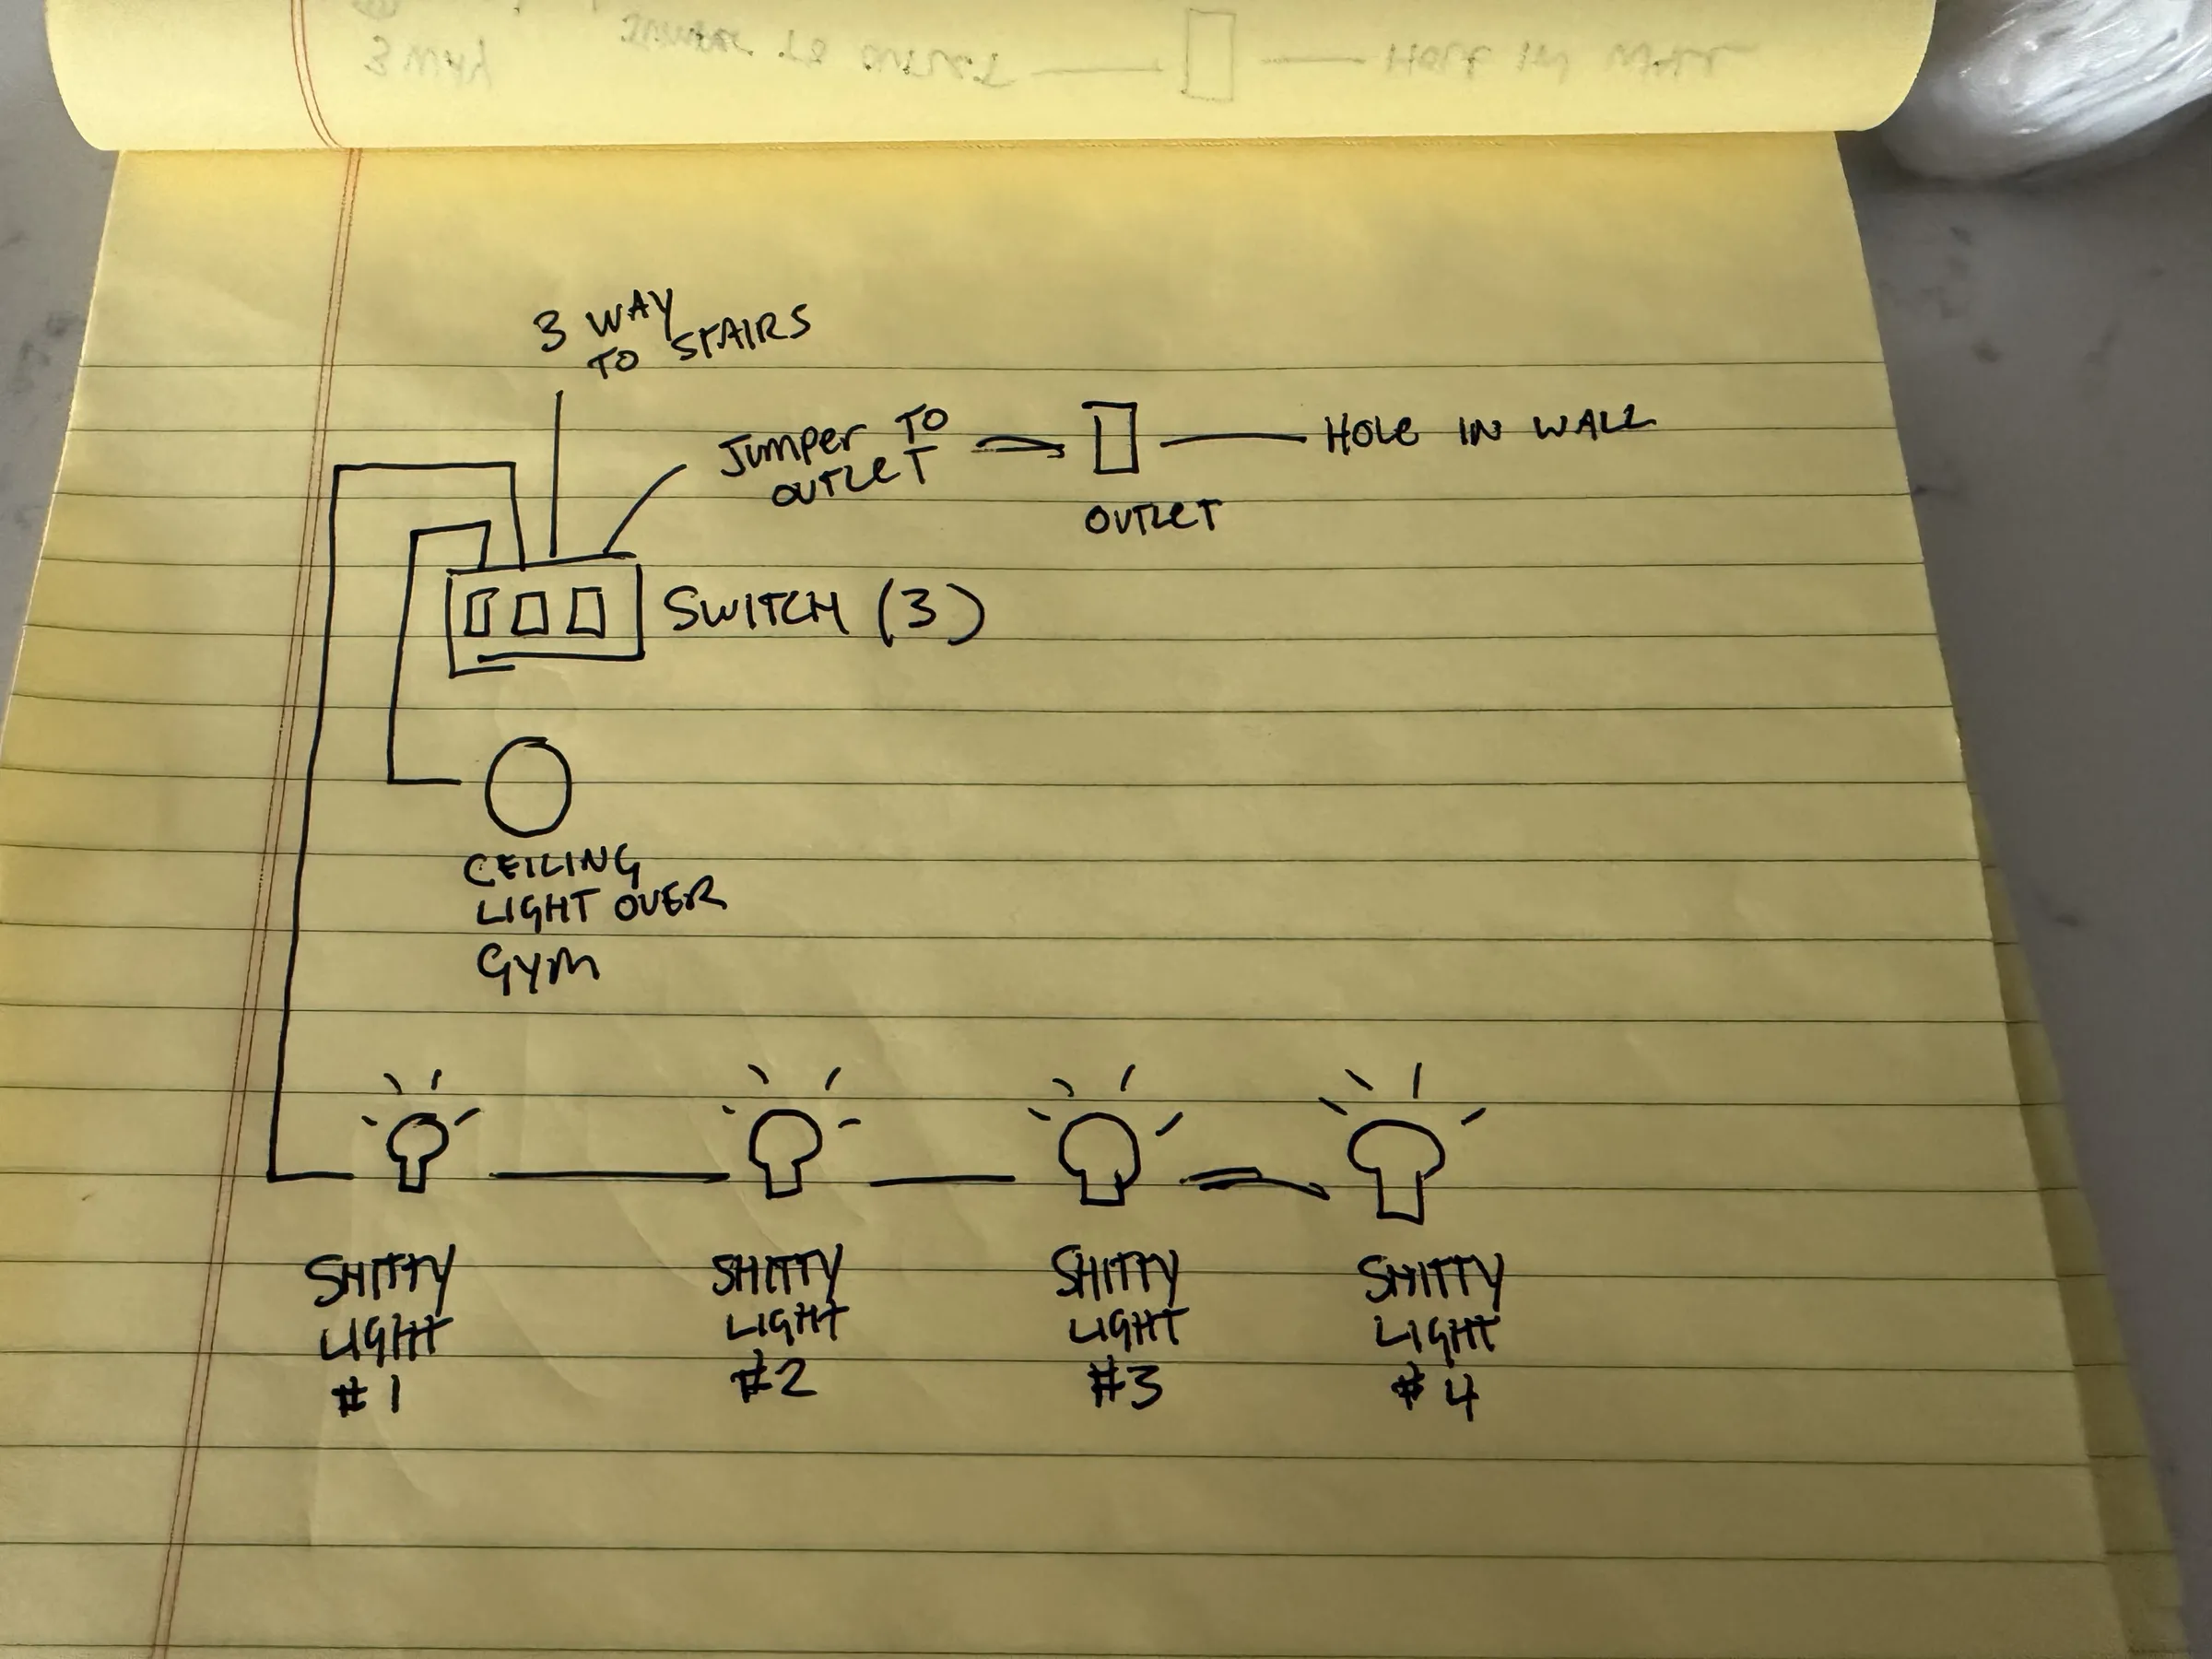 3 WAY
TO STAIRS
Jumper TO
OUTLET
HOLE IN WALL
OUTLET
SWITCH (3)
CEILING
LIGHT OVER
GYM
SHITTY
LIGHT
#1
SHITTY
LIGHT
#2
SHITTY
LIGHT
#3
SHITTY
LIGHT
#4